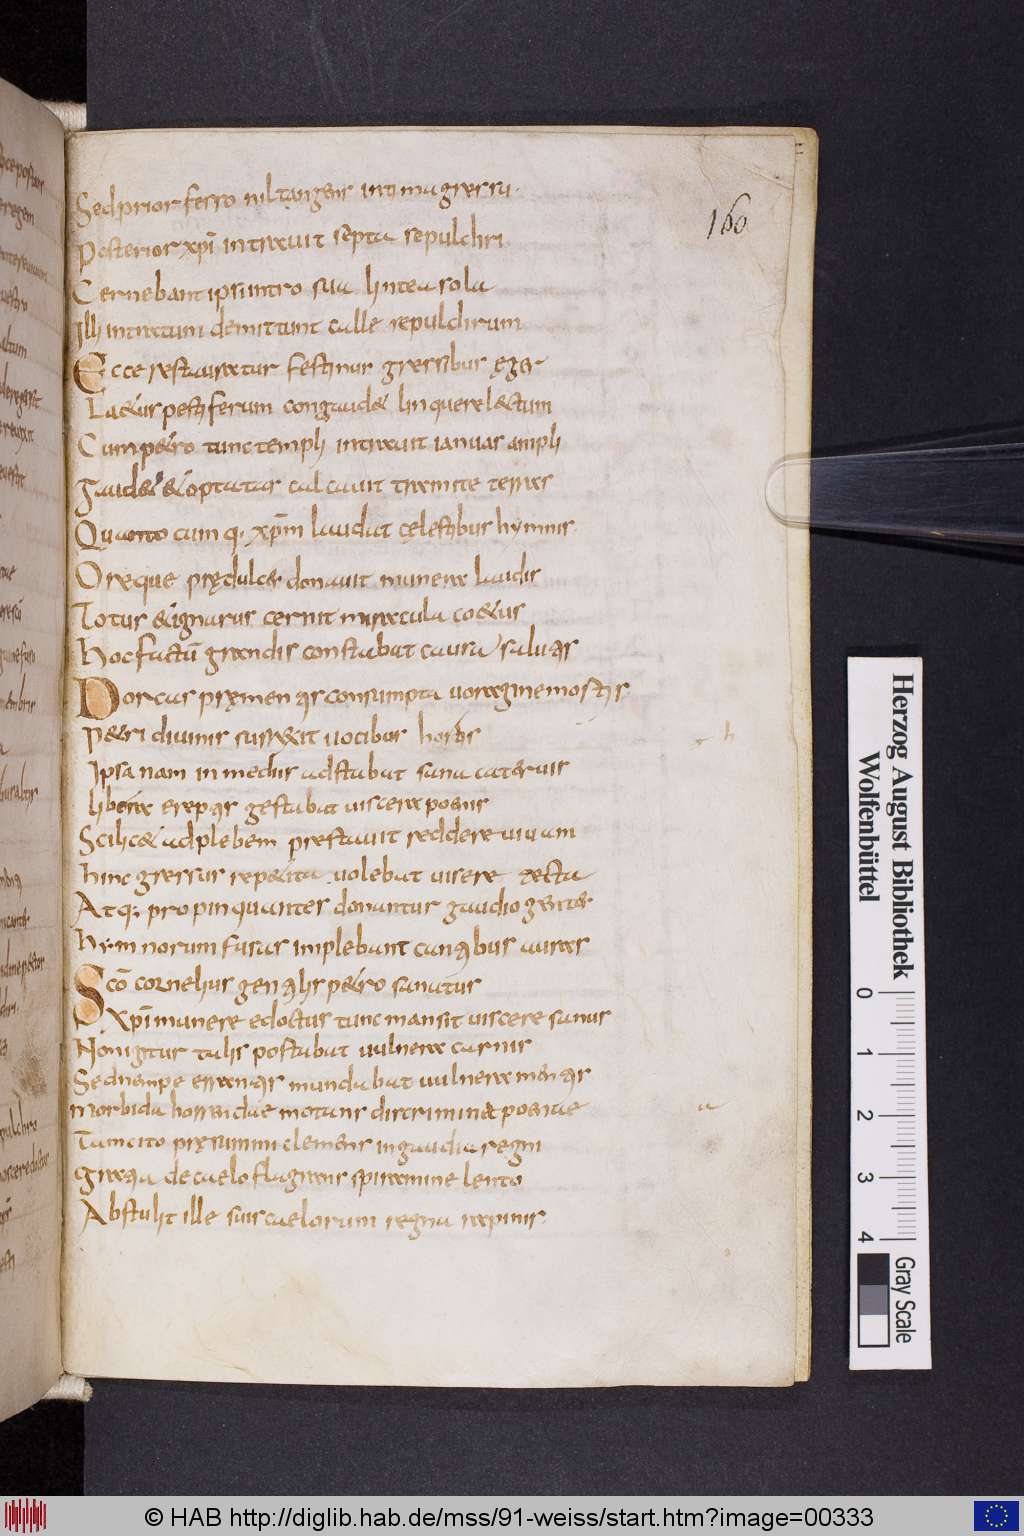 160
Sed prior ferro nil tangens intima gressu.
Posterior xpi intravit septa sepulchri
Cernebant ipsi intro sua lintea sola
Illi intratum demittunt calle sepulchrum
Ecce restauratur festinus gressibus ęger
Laetus pestiferum congaudet linquere lectum
Cum petro tunc templi intravit ianuas ampli
Gaudet et optatas calcavit tramite terras
Quanto cumq; xpm laudat cęlestibus hymnis
Oreque prędulcer donavit munera laudis
Totus et ignarus cernit miracula coetus
Hoc factū grandis constabat causa salutis
Dorcas pręmentis consumpta voragine mortis
Petri divinis surrexit vocibus hortis
Ipsa nam in mediis adstabat sana catervis
libera ereptis gestabat viscera poenis
Scilicet ad plebem prestavit reddere vivam
hinc gressus repetita volebat visere tecta
Atq; propinquantes donantur gaudio gentes
hymnorum fusas implebant cantibus auras
Scō cornelius gentilis petro sanatus
Xpi munere edoctus tunc mansit viscere sanus
Non igitur talis postabat vulnera carnis
Sed nempe errantis mundabat vulnera mentis
morbida horrendae motans discrimina poenae
Tam cito pręsummi clemens in gaudia regni
Gratia de caelo flagrans spiramine lento
Abstulit ille suis caelorum regna rapinis
h
a
Herzog August Bibliothek
Wolfenbüttel
0 1 2 3 4
Gray Scale
© HAB http://diglib.hab.de/mss/91-weiss/start.htm?image=00333